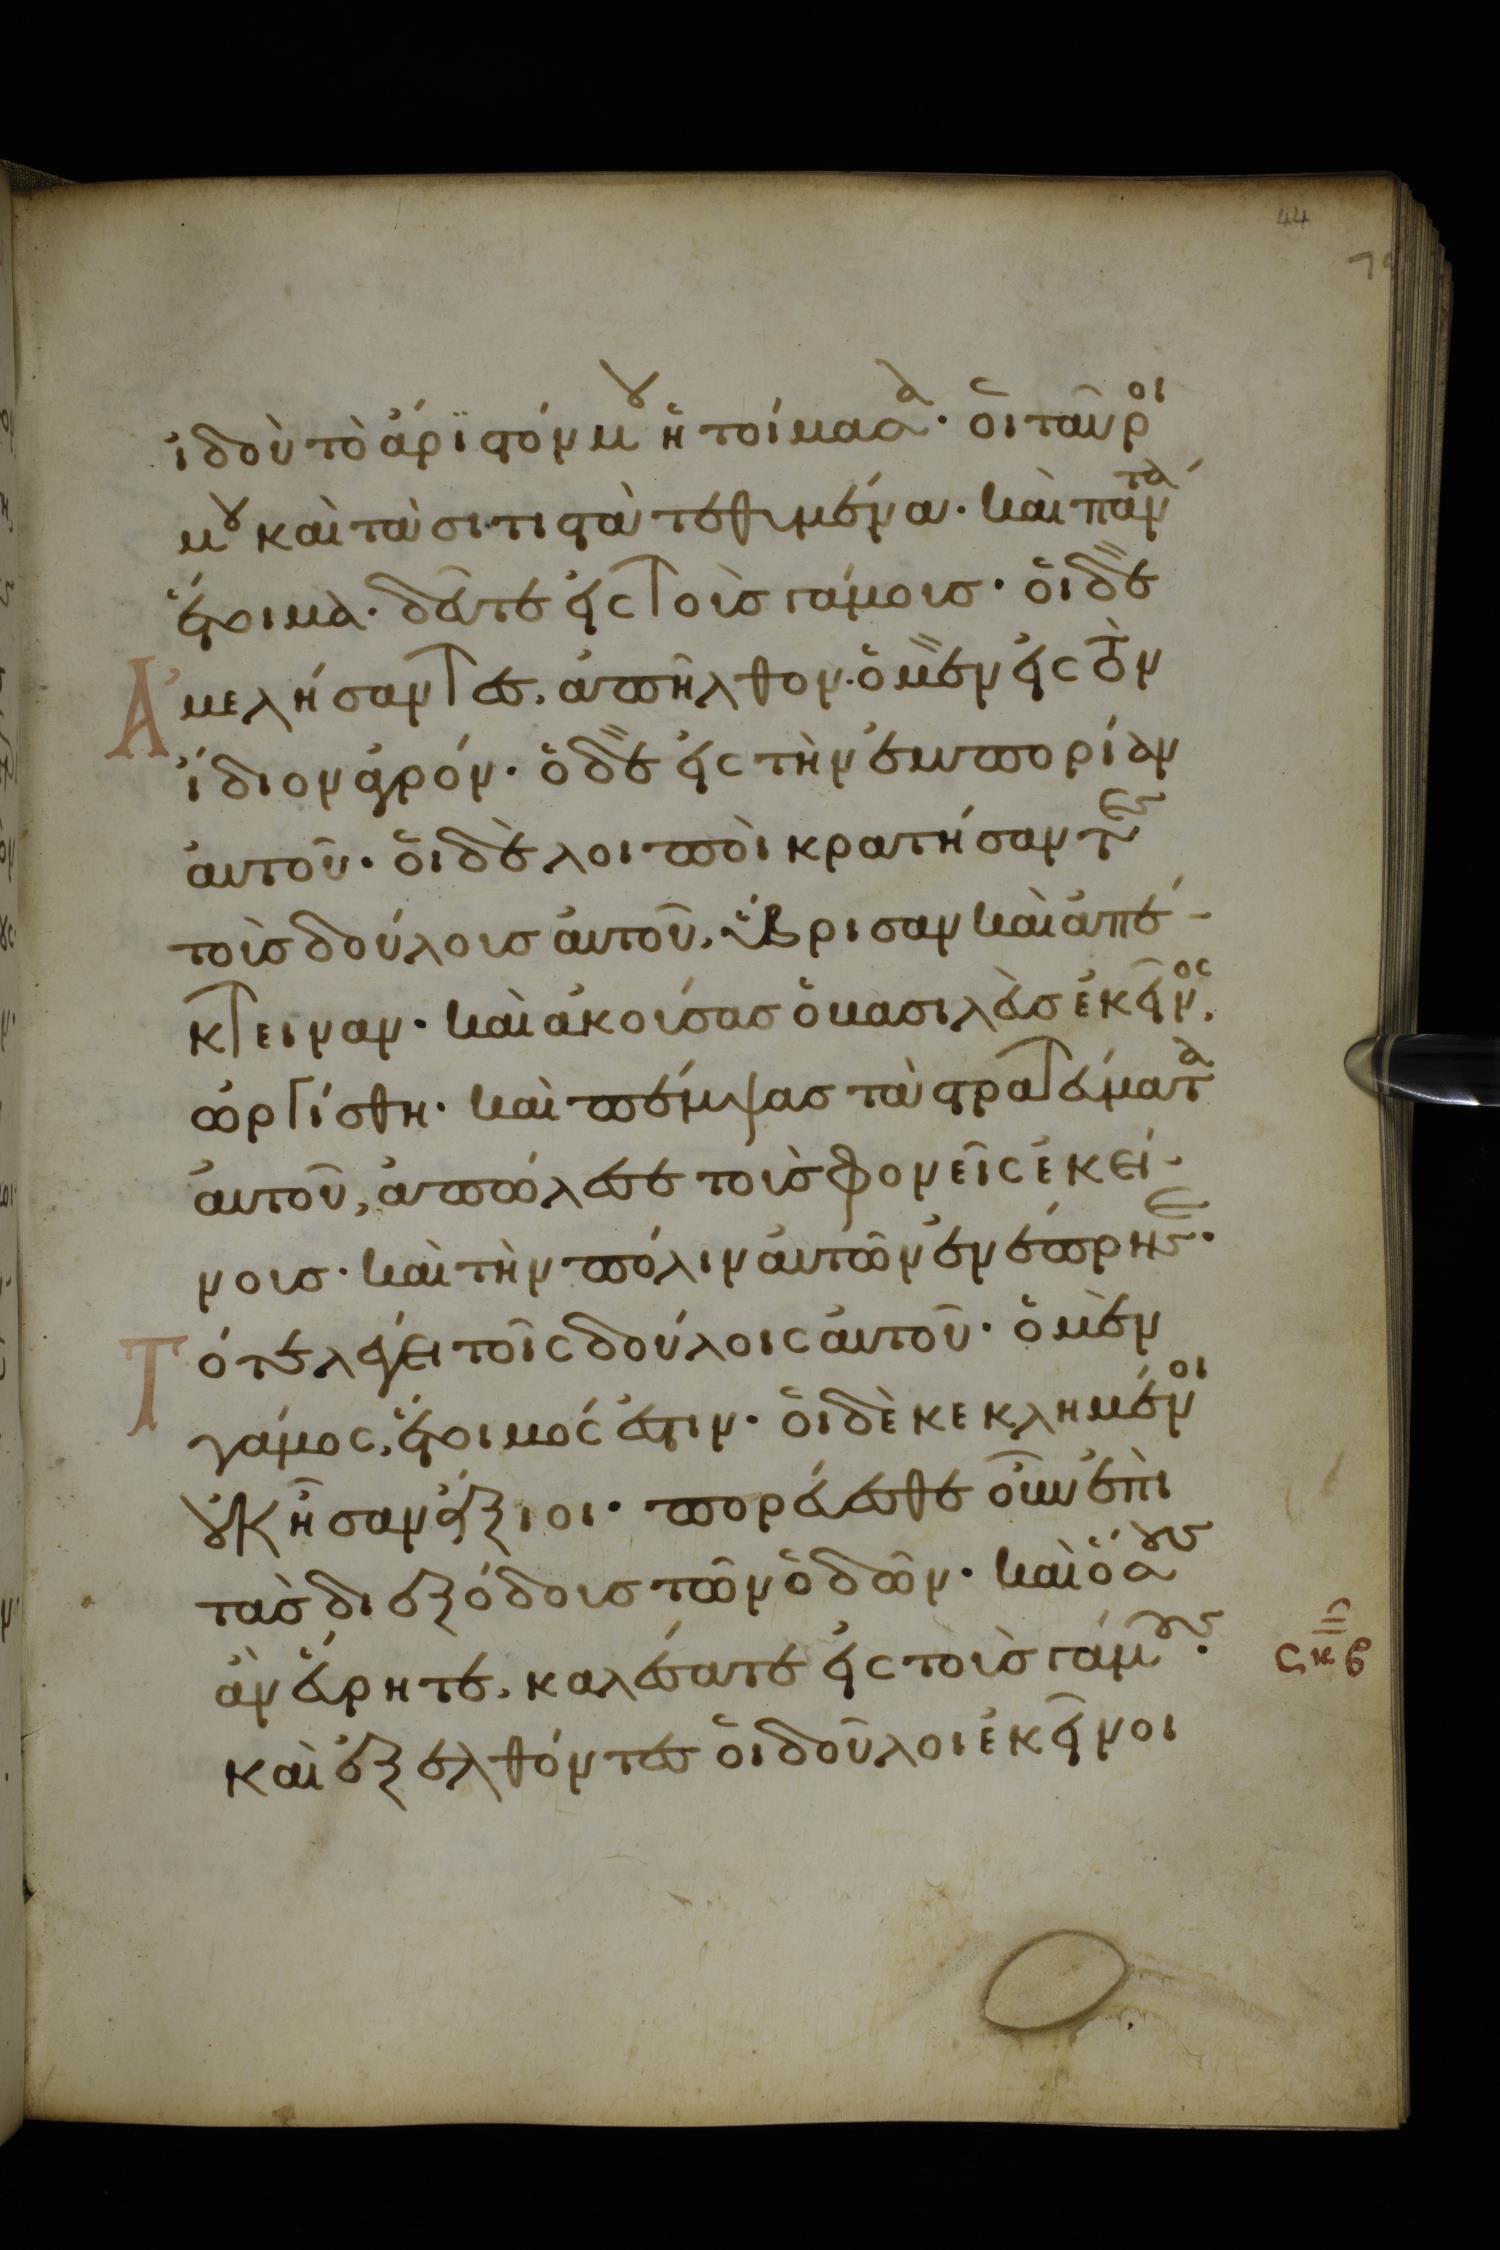 44
ἰδοὺ τὸ ἄριϊστόν μου ἡτοίμασα· οἱ ταῦροι
μου καὶ τὰ σιτιστὰ τεθυμένα· καὶ πάντα
ἕτοιμα· δεῦτε εἰς τοὺς γάμους· οἱ δὲ
Ἀμελήσαντες, ἀπῆλθον· ὁ μὲν εἰς τὸν
ἴδιον ἀγρόν· ὁ δὲ εἰς τὴν ἐμπορίαν
αὐτοῦ· οἱ δὲ λοιποὶ κρατήσαντες
τοὺς δούλους αὐτοῦ, ὕβρισαν καὶ ἀπέ-
κτειναν· καὶ ἀκούσας ὁ βασιλεὺς ἐκεῖνος,
ὠργίσθη· καὶ πέμψας τὰ στρατεύματα
αὐτοῦ, ἀπώλεσε τοὺς φονεῖς ἐκεί-
νους· καὶ τὴν πόλιν αὐτῶν ἐνέπρησεν·
Τότε λέγει τοῖς δούλοις αὐτοῦ· ὁ μὲν
γάμος, ἕτοιμός ἐστιν· οἱ δὲ κεκλημένοι
οὐκ ἦσαν ἄξιοι· πορεύεσθε οὖν ἐπὶ
τὰς διεξόδους τῶν ὁδῶν· καὶ ὅσους
ἂν εὕρητε, καλέσατε εἰς τοὺς γάμους·
καὶ ἐξελθόντες οἱ δοῦλοι ἐκεῖνοι